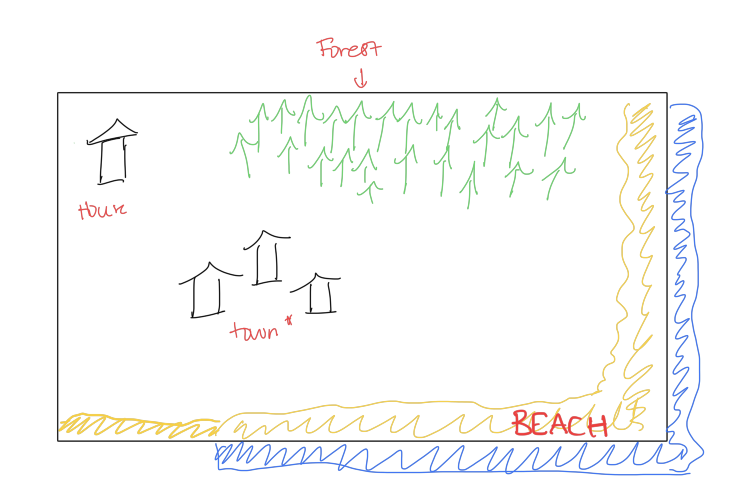 Forest
House
town *
BEACH